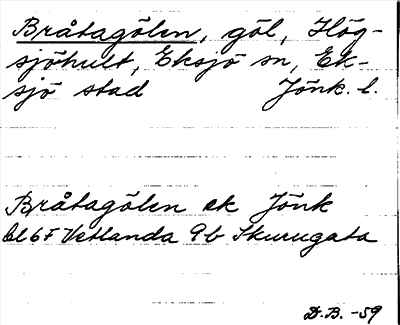 Bråtagölen, göl, Hög-
sjöhult, Eksjö sn, Ek-
sjö stad Jönk. l.
Bråtagölen ek Jönk
bl 67 Vetlanda 9b Skurugata
D.B. -59